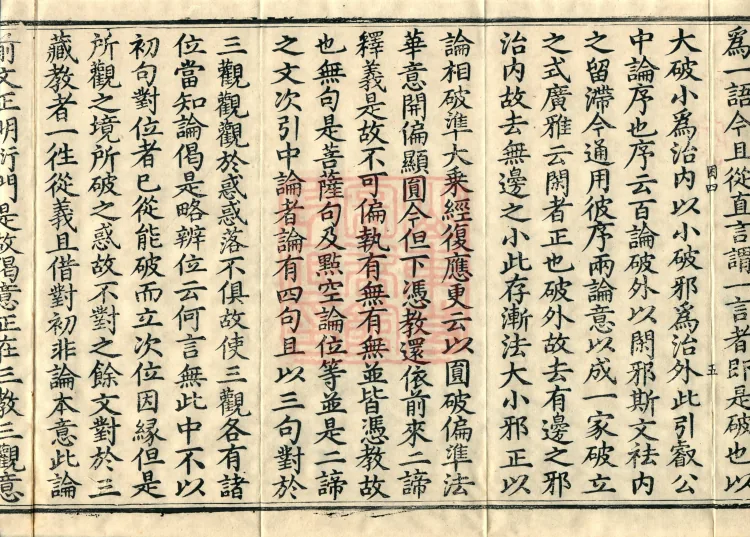 爲一語今且從直言謂一言者即是破也以
因四
五
大破小爲治内以小破邪爲治外此引叡公
中論序也序云百論破外以閑邪斯文祛内
之留滯今通用彼序兩論意以成一家破立
之式廣雅云閑者正也破外故去有邊之邪
治内故去無邊之小此存漸法大小邪正以
論相破準大乗經復應更云以圓破偏準法
華意開偏顯圓今但下憑教還依前來二諦
釋義是故不可偏執有無有無並皆憑教故
也無句是菩薩句及點空論位等並是二諦
之文次引中論者論有四句且以三句對於
三觀觀觀於惑惑落不俱故使三觀各有諸
位當知論偈是略辨位云何言無此中不以
初句對位者已從能破而立次位因緣但是
所觀之境所破之惑故不對之餘文對於三
藏教者一徃從義且借對初非論本意此論
前文正明衍門是故偈意正在三教三觀意